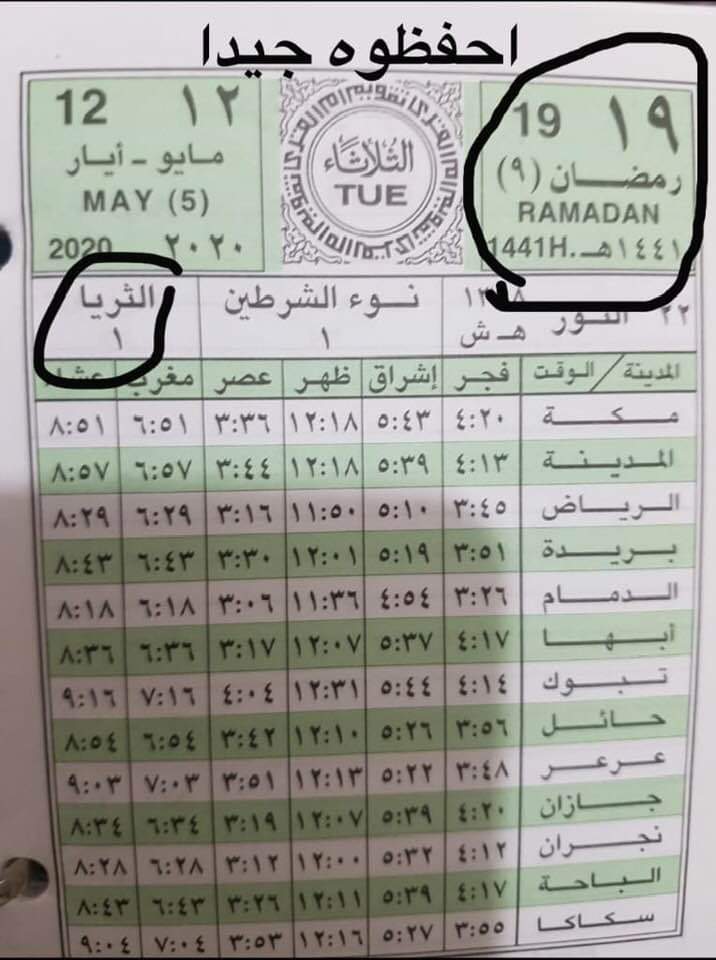 احفظوه جيدا
١٩ 19
رمضان (٩)
RAMADAN
١٤٤١هـ. 1441H.
الثلاثاء
TUE
١٢ 12
مايو - أيار
MAY (5)
٢٠٢٠ 2020
٢٢ الثور هـ ش
نوء الشرطين ١
الثريا ١
المدينة / الوقت فجر إشراق ظهر عصر مغرب عشاء
مكة ٤:٢٠ ٥:٤٣ ١٢:١٨ ٣:٣٦ ٦:٥١ ٨:٥١
المدينة ٤:١٣ ٥:٣٩ ١٢:١٨ ٣:٤٤ ٦:٥٧ ٨:٥٧
الرياض ٣:٤٥ ٥:١٠ ١١:٥٠ ٣:١٦ ٦:٢٩ ٨:٢٩
بريدة ٣:٥١ ٥:١٩ ١٢:٠١ ٣:٣٠ ٦:٤٣ ٨:٤٣
الدمام ٣:٢٦ ٤:٥٤ ١١:٣٦ ٣:٠٦ ٦:١٨ ٨:١٨
أبها ٤:١٧ ٥:٣٧ ١٢:٠٧ ٣:١٧ ٦:٣٦ ٨:٣٦
تبوك ٤:١٤ ٥:٤٤ ١٢:٣١ ٤:٠٤ ٧:١٦ ٩:١٦
حائل ٣:٥٦ ٥:٢٦ ١٢:١٠ ٣:٤٢ ٦:٥٤ ٨:٥٤
عرعر ٣:٤٨ ٥:٢٢ ١٢:١٣ ٣:٥١ ٧:٠٣ ٩:٠٣
جازان ٤:٢٠ ٥:٣٩ ١٢:٠٧ ٣:١٩ ٦:٣٤ ٨:٣٤
نجران ٤:١٢ ٥:٣٢ ١٢:٠٠ ٣:١٢ ٦:٢٨ ٨:٢٨
الباحة ٤:١٧ ٥:٣٩ ١٢:١١ ٣:٢٦ ٦:٤٣ ٨:٤٣
سكاكا ٣:٥٥ ٥:٢٧ ١٢:١٦ ٣:٥٣ ٧:٠٤ ٩:٠٤